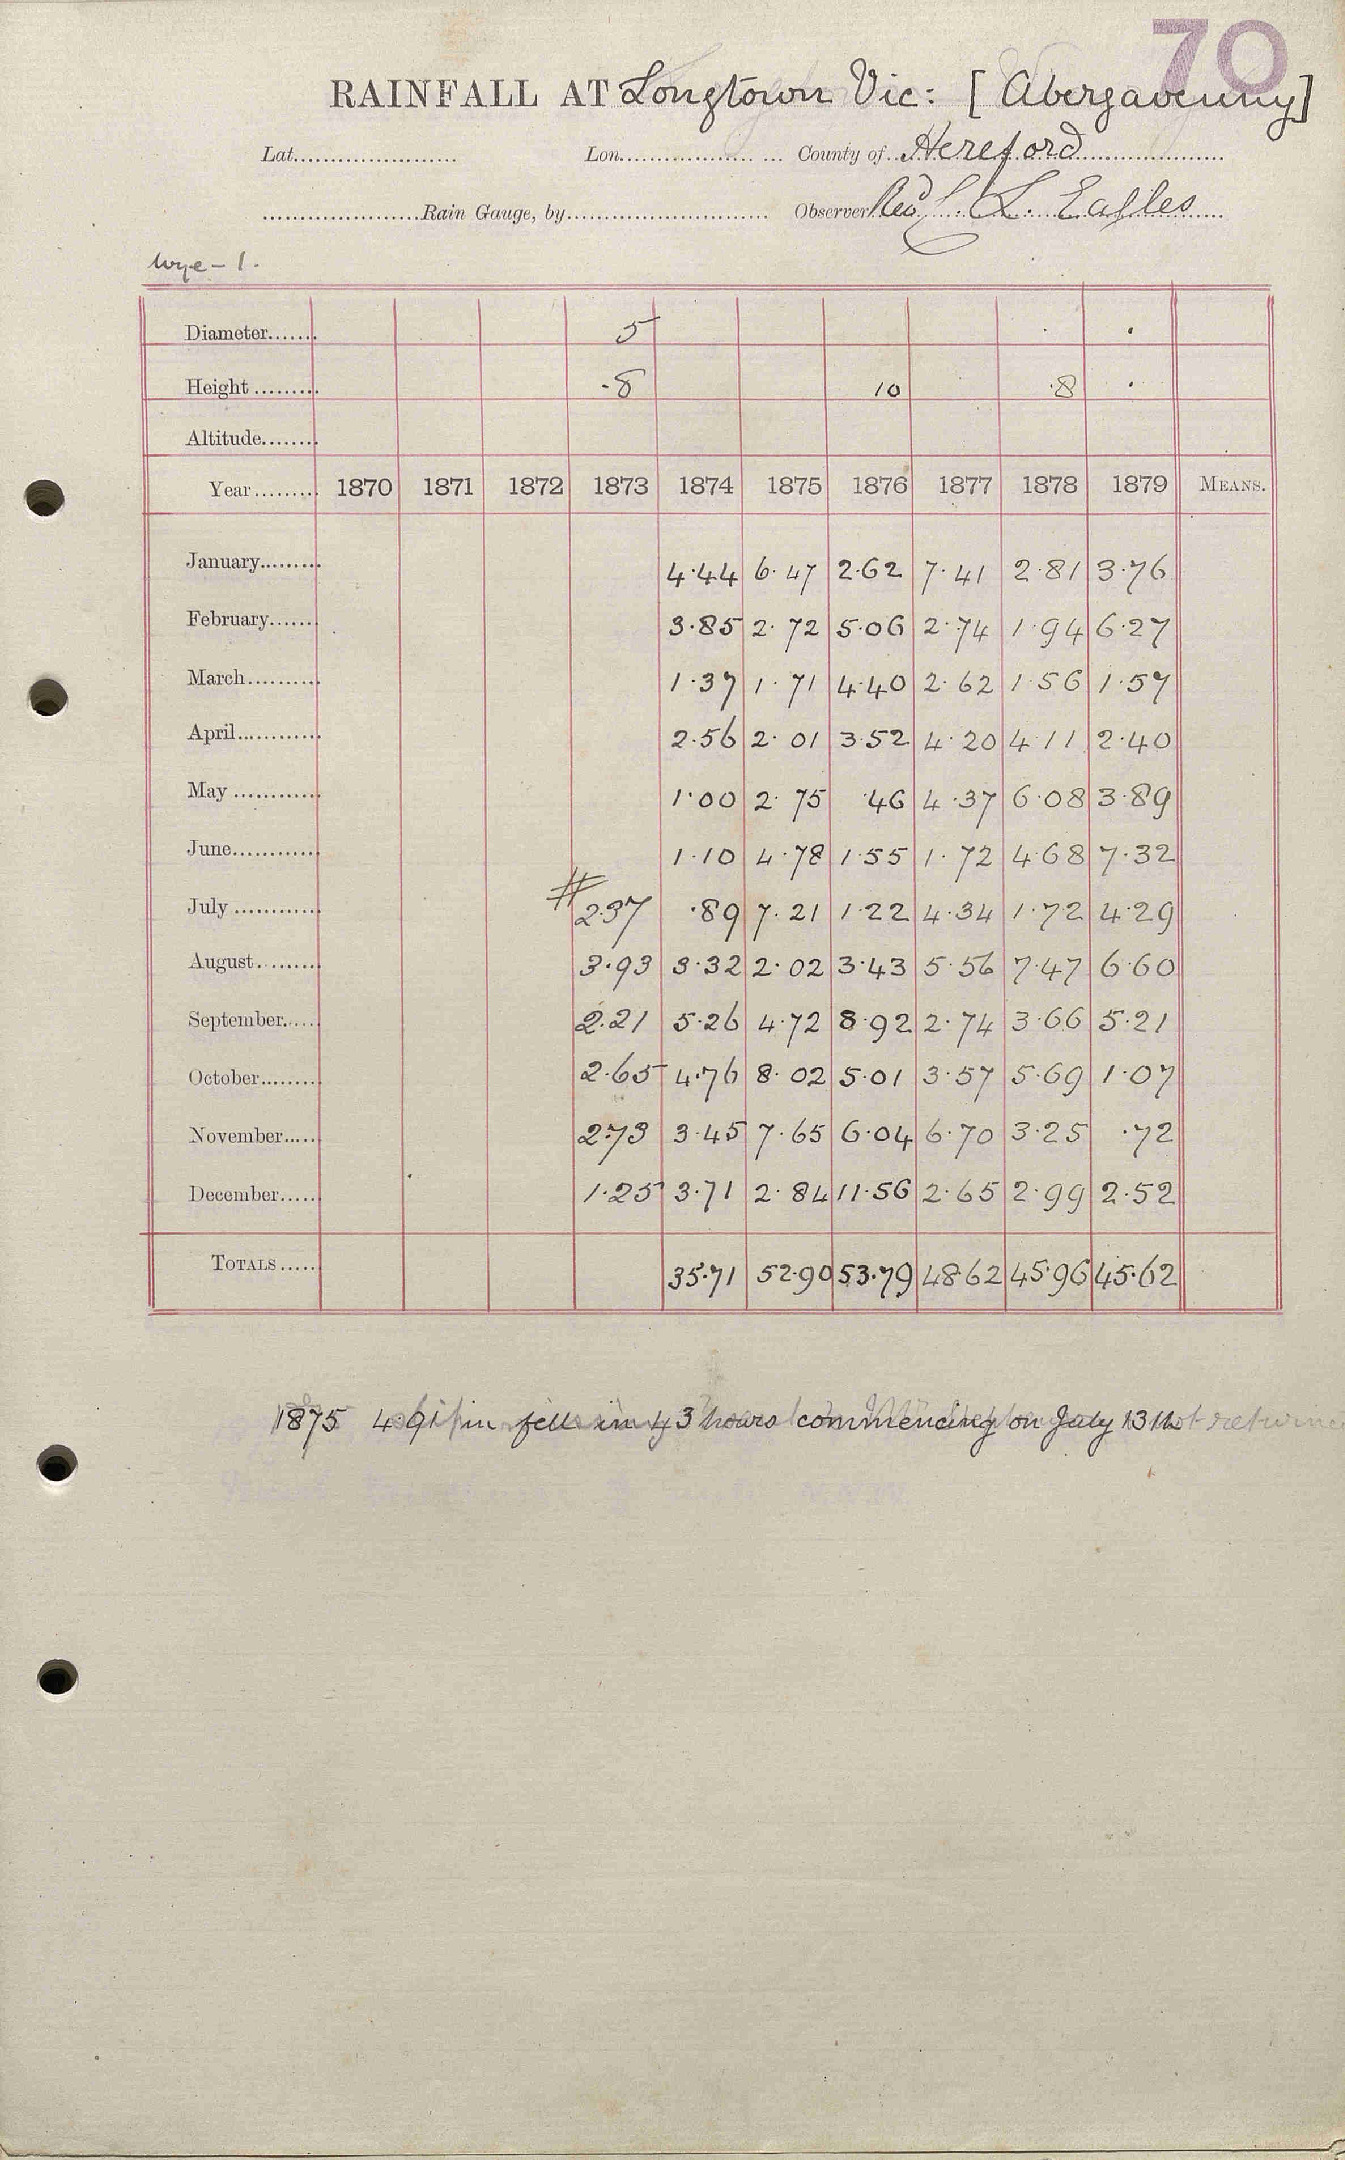 70
RAINFALL AT Longtown Vic: [Abergavenny]
Lat. Lon. County of Hereford
Rain Gauge, by Observer Revd C. L. Eagles
Wye - 1.
Diameter 5 · ·
Height ·8 10 ·8 ·
Altitude
Year 1870 1871 1872 1873 1874 1875 1876 1877 1878 1879 MEANS.
January 4·44 6·47 2·62 7·41 2·81 3·76
February 3·85 2·72 5·06 2·74 1·94 6·27
March 1·37 1·71 4·40 2·62 1·56 1·57
April 2·56 2·01 3·52 4·20 4·11 2·40
May 1·00 2·75 ·46 4·37 6·08 3·89
June 1·10 4·78 1·55 1·72 4·68 7·32
July # 2·37 ·89 7·21 1·22 4·34 1·72 4·29
August 3·93 3·32 2·02 3·43 5·56 7·47 6·60
September 2·21 5·26 4·72 8·92 2·74 3·66 5·21
October 2·65 4·76 8·02 5·01 3·57 5·69 1·07
November 2·73 3·45 7·65 6·04 6·70 3·25 ·72
December 1·25 3·71 2·84 11·56 2·65 2·99 2·52
TOTALS 35·71 52·90 53·79 48·62 45·96 45·62
1875 4·91 in fell in 43 hours commencing on July 13th